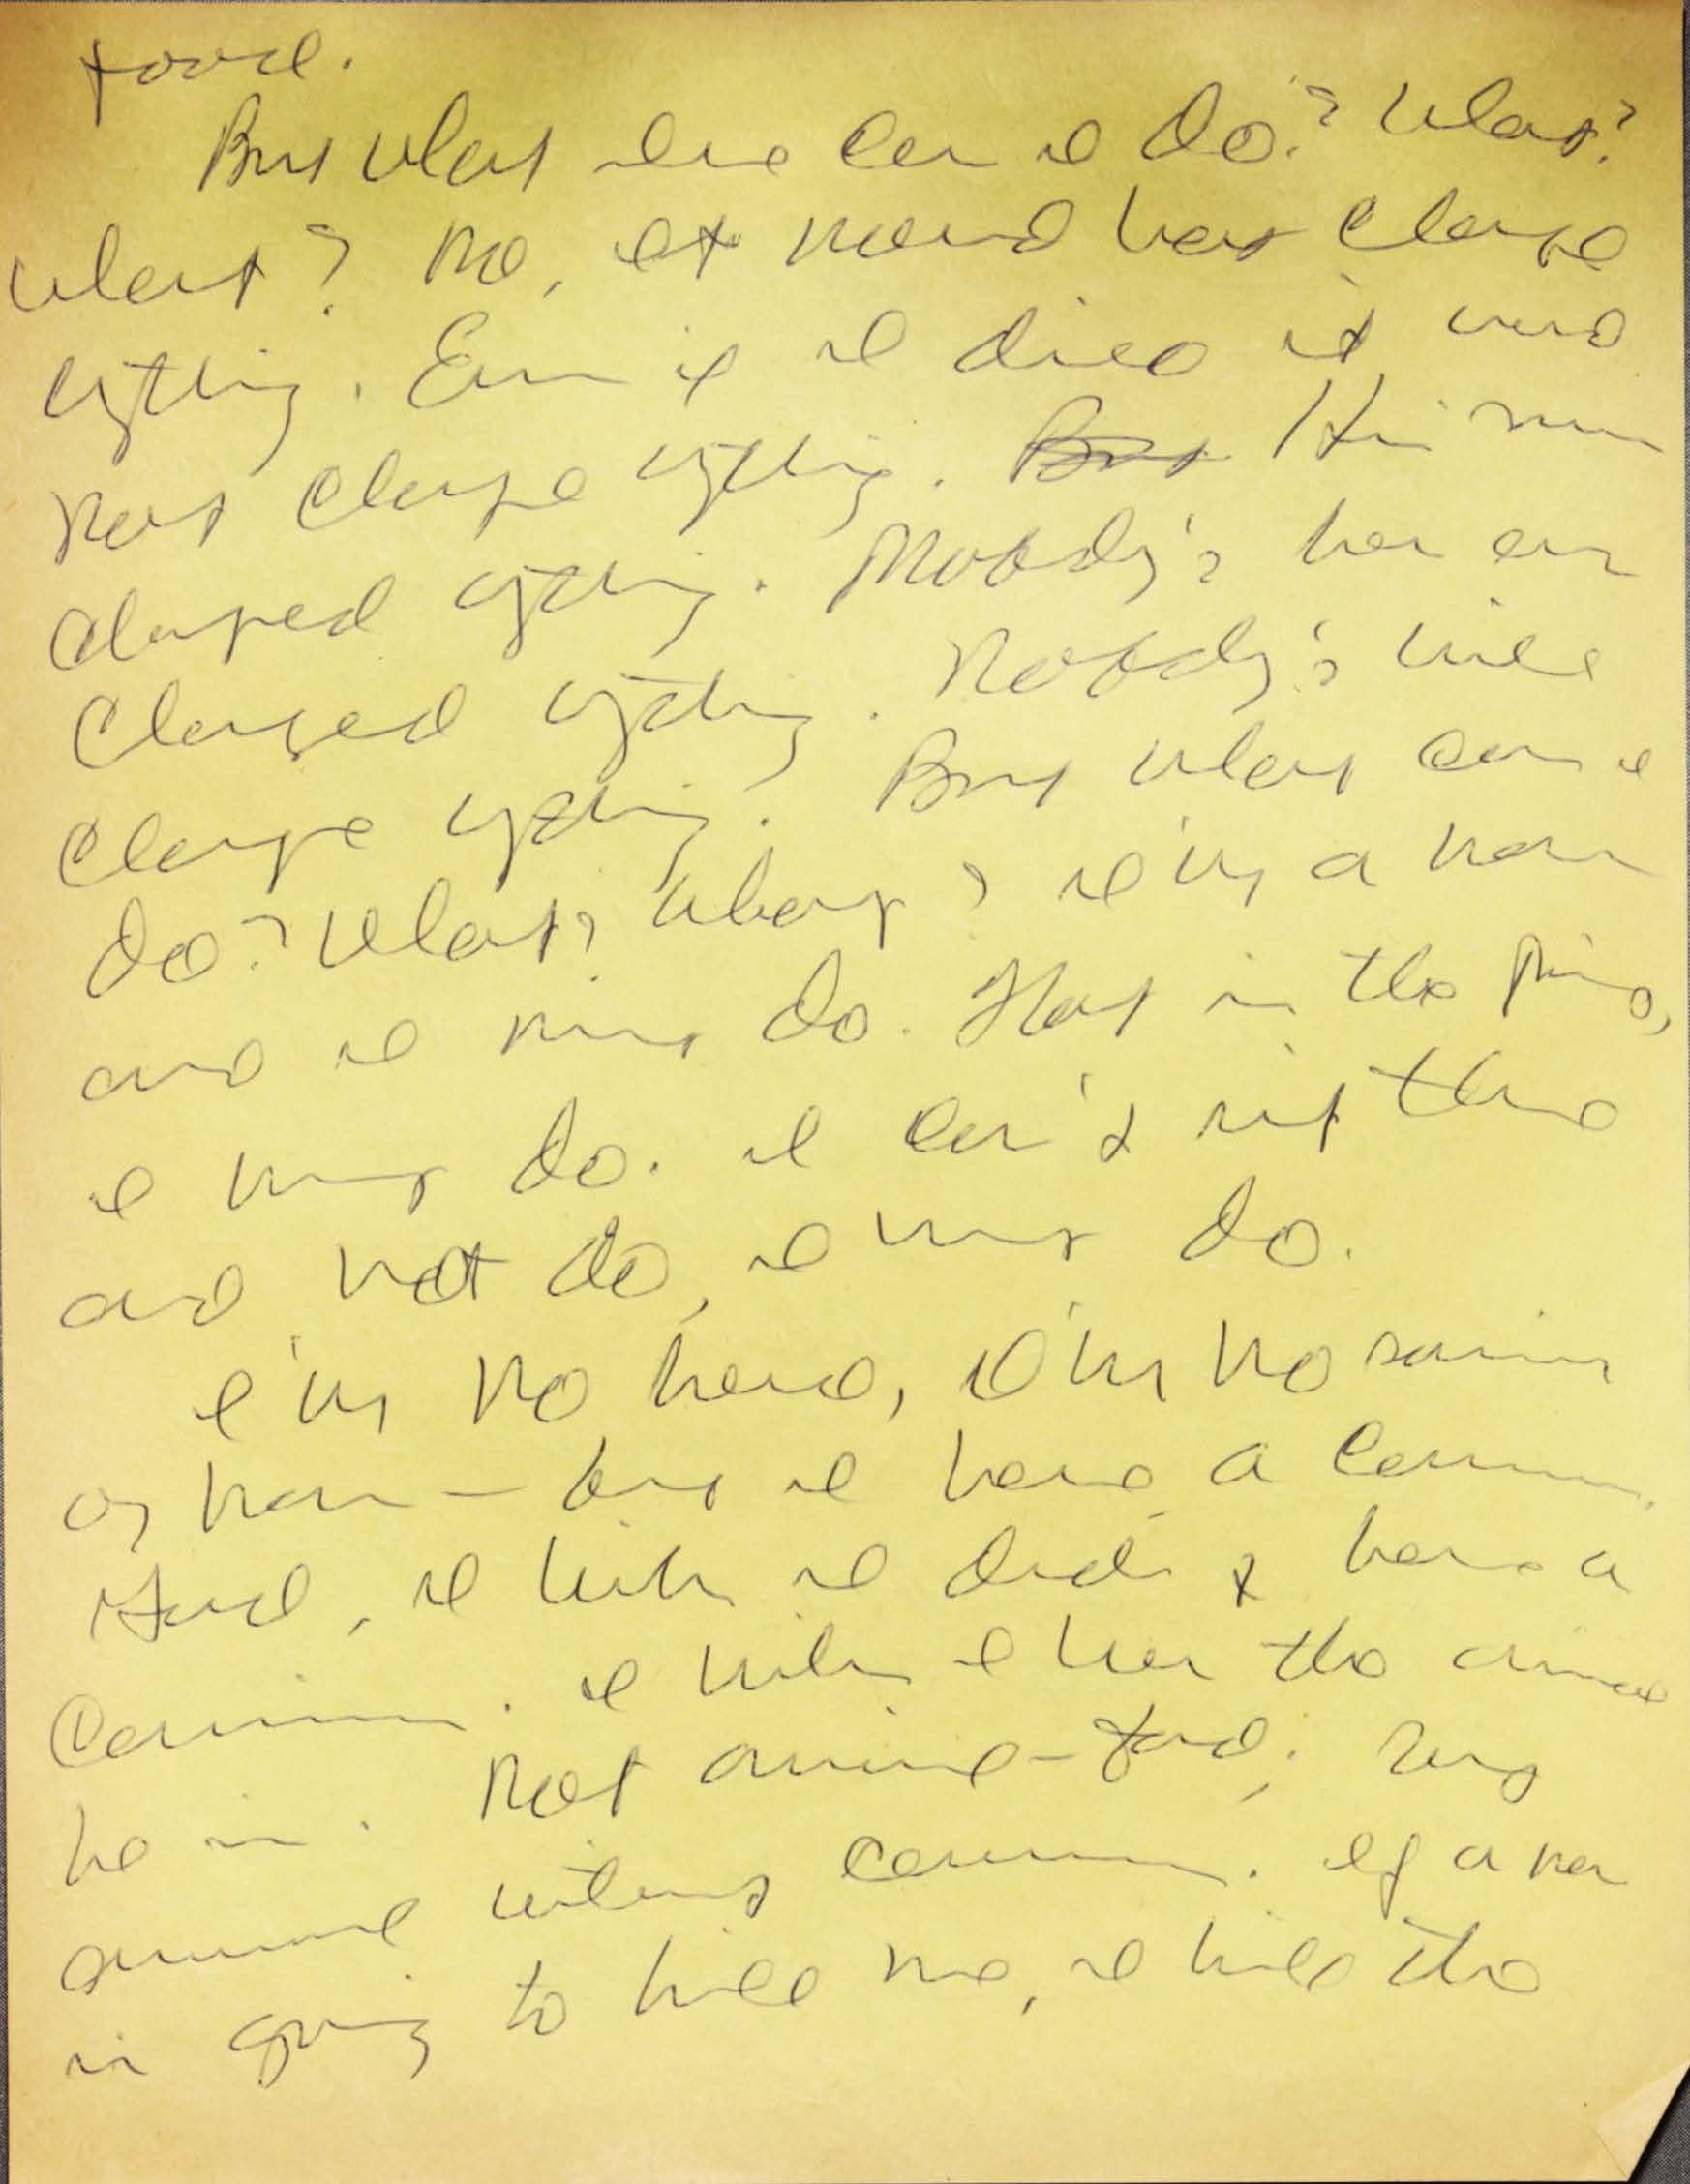 food.
But what else can I do? What?
What? No, it would not change
anything. Even if I died it would
not change anything. His
changed anything. Nobody's has ever
changed anything. Nobody's will
change anything. But what can I
do? What? What? I'm a man
and I must do. That is the thing,
I must do. I can't sit there
and not do, I must do.
I'm no hero, I'm no saint
of man – but I have a conscience.
God, I wish I didn't have a
conscience. I wish I was the animal
he is. Not animal-food;
animal without conscience. If a man
is going to kill me, I kill the